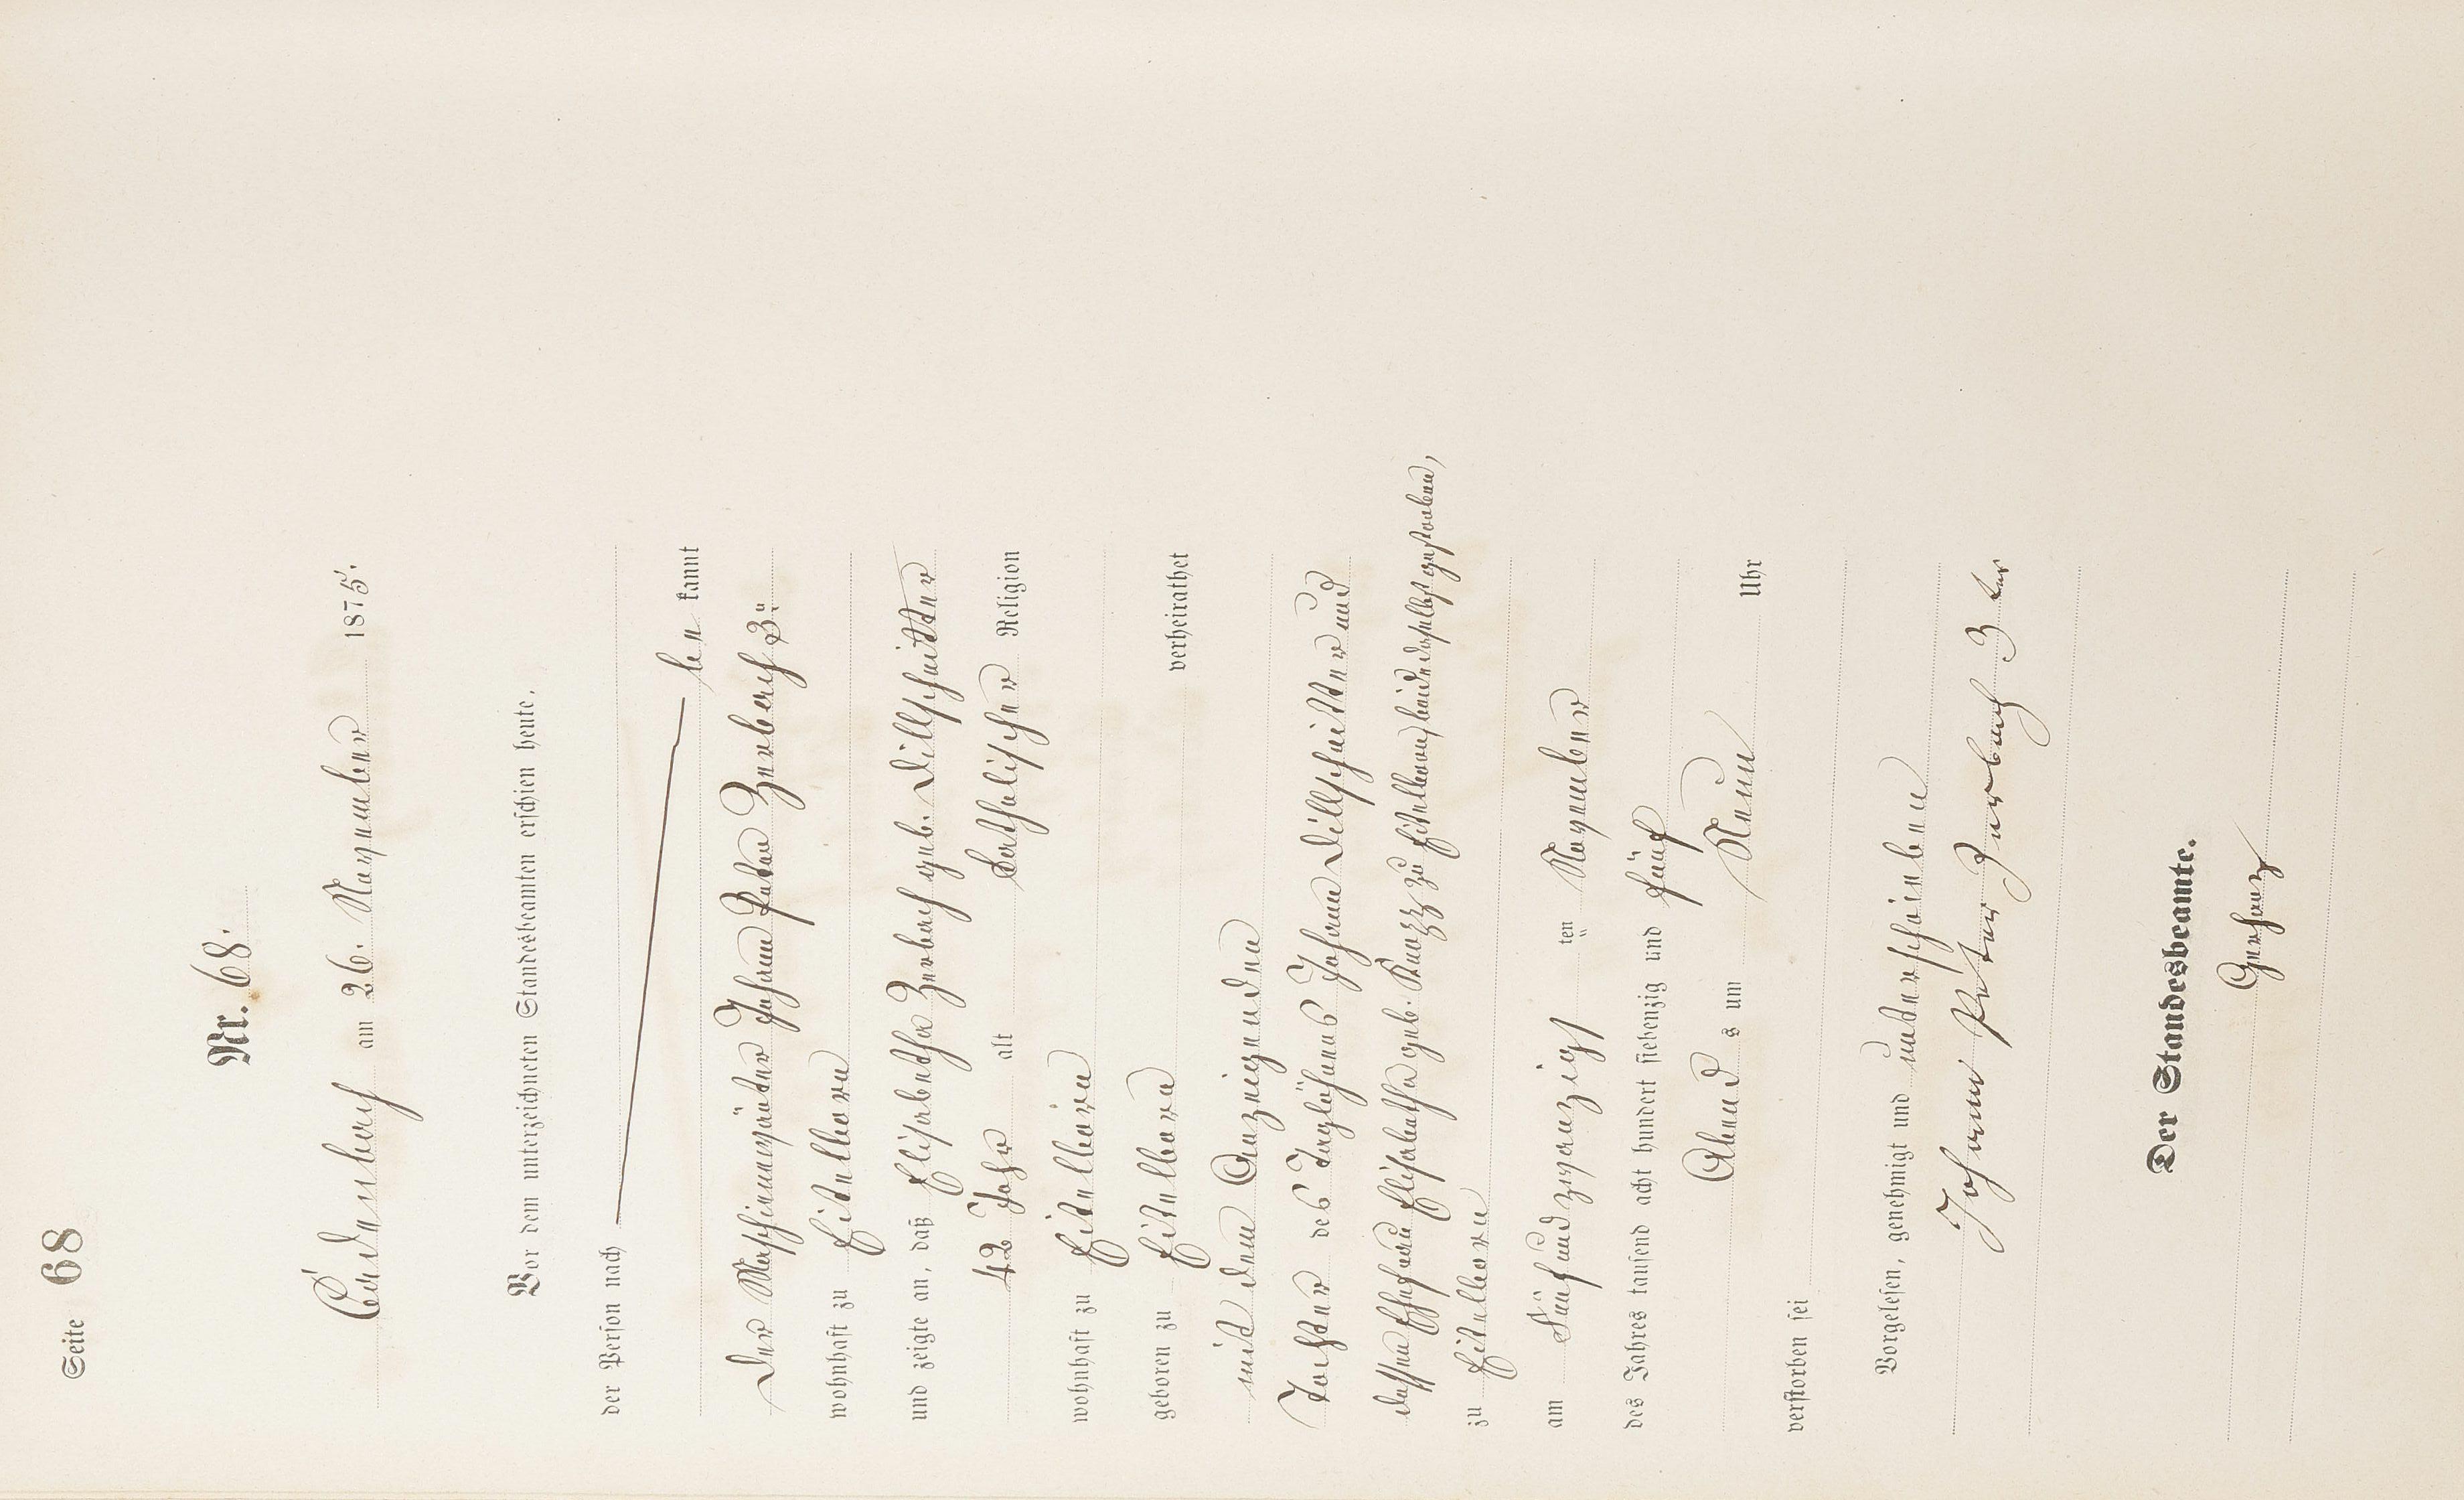 Seite 68
Nr. 68.
Cadenbach am 26. November 1875.
Vor dem unterzeichneten Standesbeamten erschien heute,
der Person nach
be kannt
der Johann Peter Zerbach 3.
wohnhaft zu Eitelborn
und zeigte an, daß Elisabetha Zerbach geb. Dillschnitter
42 Jahr alt katholischer Religion
wohnhaft zu Eitelborn
geboren zu Eitelborn
verheirathet
mit dem Anzeigenden
Tochter des Taglöhners Johann Dillschnitter und
dessen Ehefrau Elisabetha geb. zu Eitelborn, beide daselbst gestorben,
zu Eitelborn
am Fünfundzwanzigs ten November
des Jahres tausend acht hundert siebenzig und fünf
Abend s um Neun Uhr
verstorben sei
Vorgelesen, genehmigt und unterschrieben
Johann Peter Zerbach 3 ter
Der Standesbeamte.
Gerharz